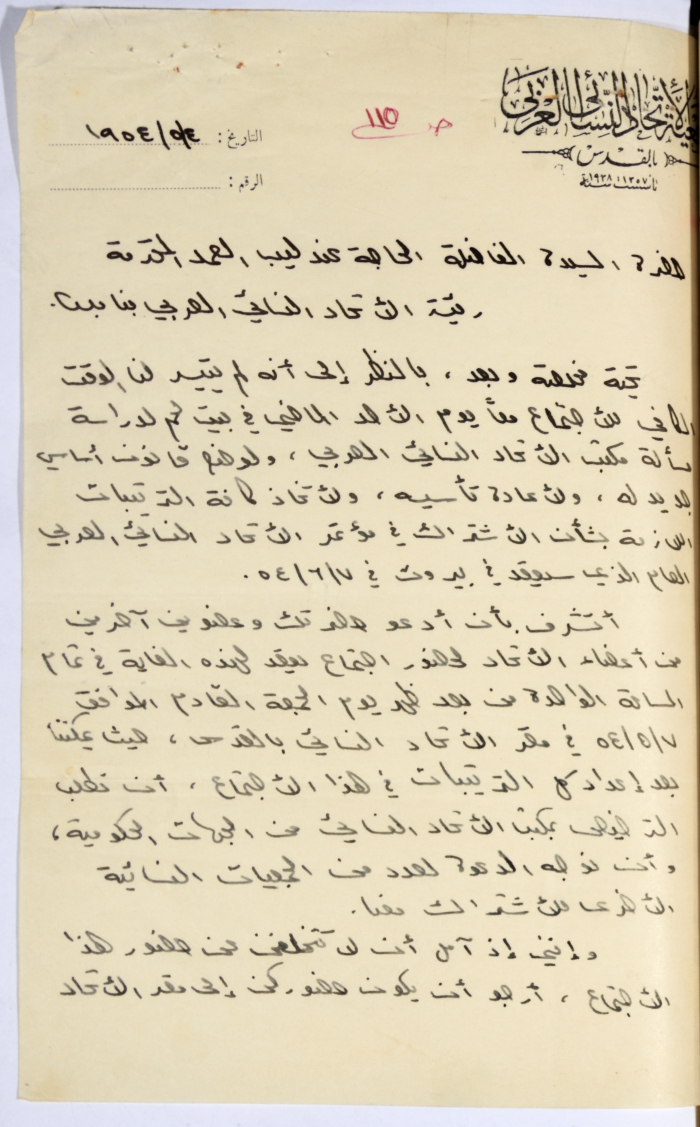 الاتحاد النسائي العربي
بالقدس
تأسست سنة ١٣٥٧ : ١٩٣٨
التاريخ : ١٩٥٤/٥/٤
ص ١١٥
الرقم :
حضرة السيدة الفاضلة الحاجة عندليب العمد المحترمة
رئيسة الاتحاد النسائي العربي بنابلس.
تحية مخلصة وبعد ، بالنظر إلى أنه لم يتيسر لنا الوقت
الكافي للاجتماع معاً يوم الأحد الماضي في بيت لحم لدراسة
مسألة مكتب الاتحاد النسائي العربي ، ولوضع قانون أساسي
جديد له ، ولاعادة تأسيسه ، ولاتخاذ كافة الترتيبات
اللازمة بشأن الاشتراك في مؤتمر الاتحاد النسائي العربي
العام الذي سيعقد في بيروت في ٥٤/٦/٧ .
أتشرف بأن أدعو حضرتك وعضوين آخرين
من أعضاء الاتحاد لحضور اجتماع يعقد لهذه الغاية في تمام
الساعة الواحدة من بعد ظهر يوم الجمعة القادم الموافق
٥٤/٥/٧ في مقر الاتحاد النسائي بالقدس ، حيث يمكننا
بعد إعداد كل الترتيبات في هذا الاجتماع ، أن نطلب
الترخيص بمكتب الاتحاد النسائي من الجهات الحكومية ،
وأن نوجه الدعوة لعدد من الجمعيات النسائية
الأخرى للاشتراك معنا .
وإنني إذ آمل أن لا تتخلفن عن حضور هذا
الاجتماع ، أرجو أن يكون حضوركن إلى مقر الاتحاد